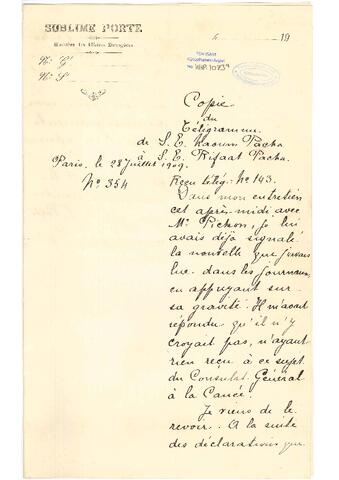 SUBLIME PORTE
Ministère des Affaires Étrangères
le 19
N° G
N° S
Copie
du
Télégramme
de S. E. Naoum Pacha
à S. E. Rifaat Pacha.
Paris, le 28 Juillet 1909.
N° 354
Reçu télég. N° 143.
Dans mon entretien
cet après-midi avec
Mr Pichon, je lui
avais déjà signalé
la nouvelle que j'avais
lue dans les journaux
en appuyant sur
sa gravité. Il m'avait
répondu qu'il n'y
croyait pas, n'ayant
rien reçu à ce sujet
du Consulat Général
à la Canée.
Je viens de le
revoir. A la suite
des déclarations que